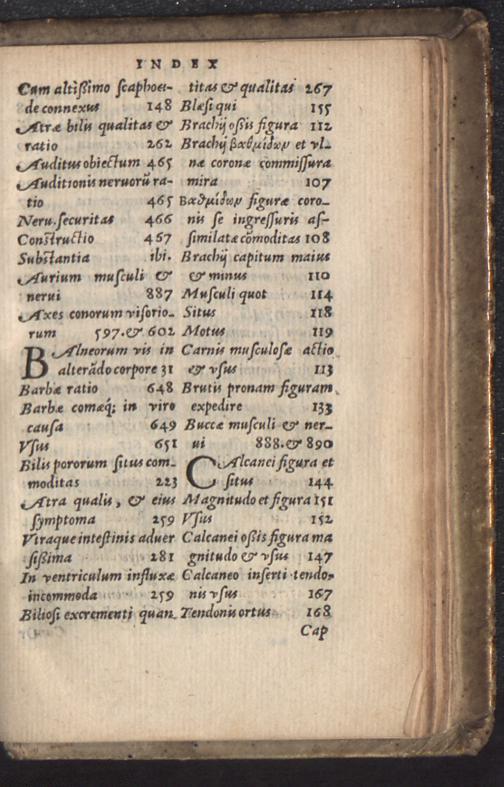 INDEX
Cum altißimo scaphoei-
de connexus 148
Atræ bilis qualitas &
ratio 262
Auditus obiectum 465
Auditionis neruorũ ra-
tio 465
Neru. securitas 466
Constructio 467
Substantia ibi.
Aurium musculi &
nerui 887
Axes conorum visorio-
rum 597. & 602
BAlneorum vis in
alterãdo corpore 31
Barbæ ratio 648
Barbæ comæq; in viro
causa 649
Vsus 651
Bilis pororum situs com-
moditas 223
Atra qualis, & eius
symptoma 259
Vtraque intestinis aduer
sißima 281
In ventriculum influxæ
incommoda 259
Biliosi excrementi quan-
titas & qualitas 267
Blæsi qui 155
Brachij oßis figura 112
Brachij βαθμίδων et vl-
næ coronæ commissura
mira 107
Βαθμίδων figuræ coro-
nis se ingressuris as-
similatæ cõmoditas 108
Brachij capitum maius
& minus 110
Musculi quot 114
Situs 118
Motus 119
Carnis musculosæ actio
& vsus 113
Brutis pronam figuram
expedire 133
Buccæ musculi & ner-
ui 888. & 890
CAlcanei figura et
situs 144
Magnitudo et figura 151
Vsus 152
Calcanei oßis figura ma
gnitudo & vsus 147
Calcaneo inserti tendo-
nis vsus 167
Tendonis ortus 168
Cap